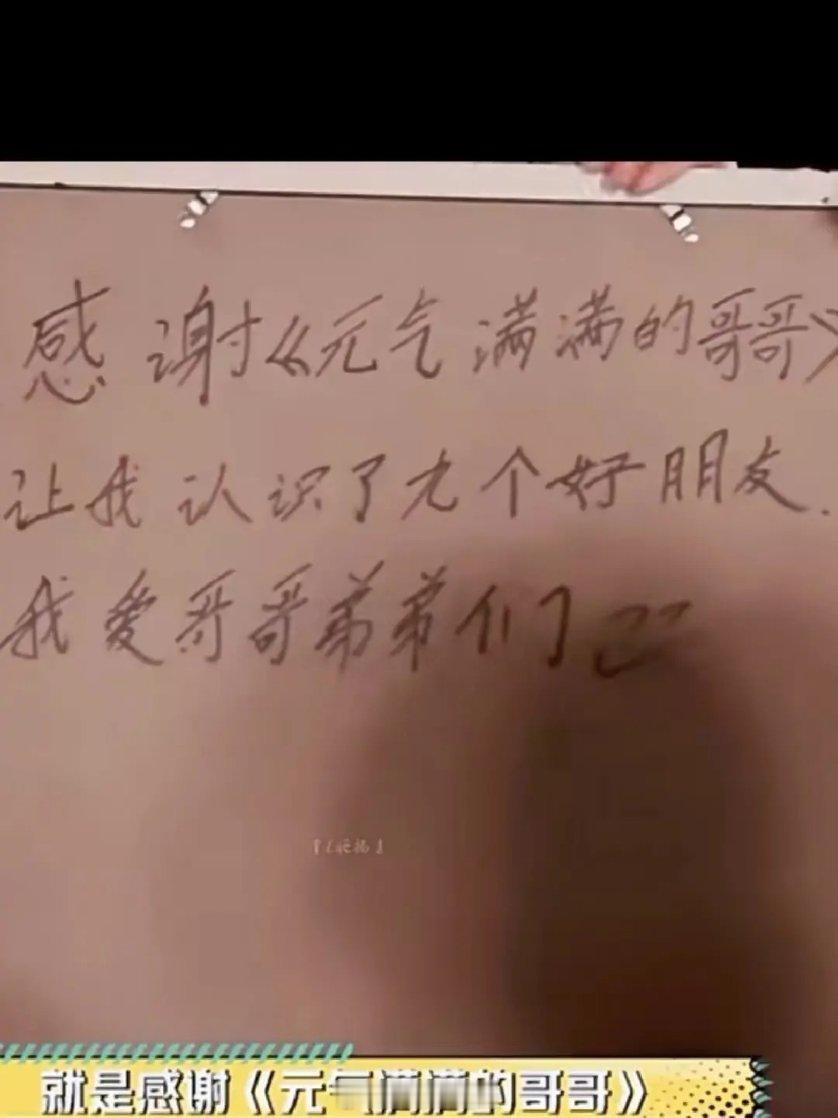 感谢《元气满满的哥哥》
让我认识了九个好朋友.
我爱哥哥弟弟们
就是感谢《元气满满的哥哥》